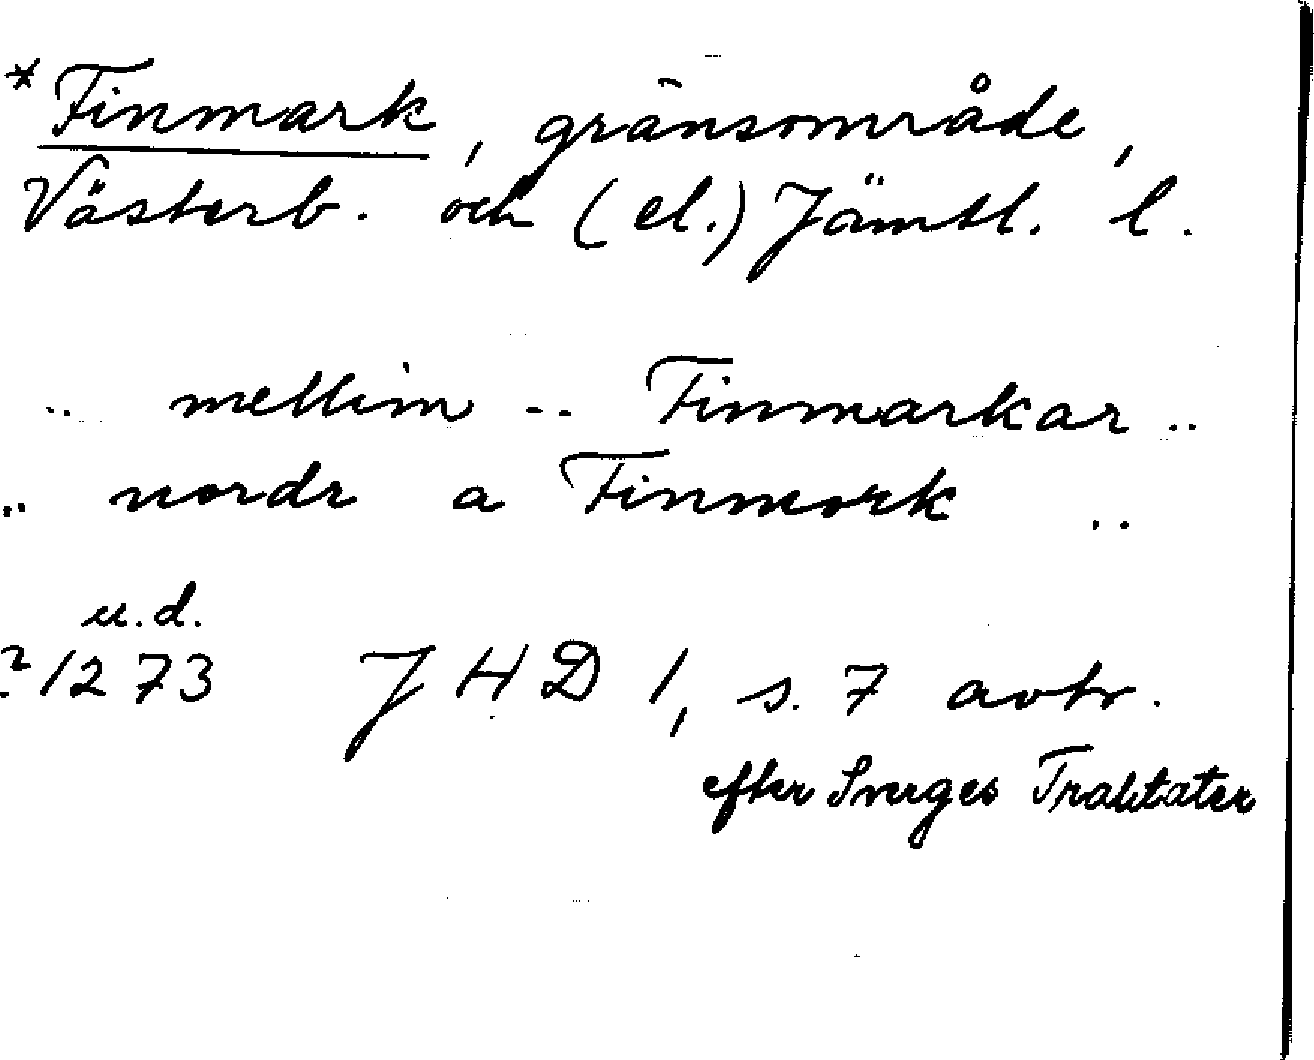 *Finmark, gränsområde,
Västerb. och (el.) Jämtl. l.
.. mellim -- Finmarkar ..
.. nordr a Finmork ..
u.d.
? 1273 JHD 1, s. 7 avtr.
efter Sverges Traktater